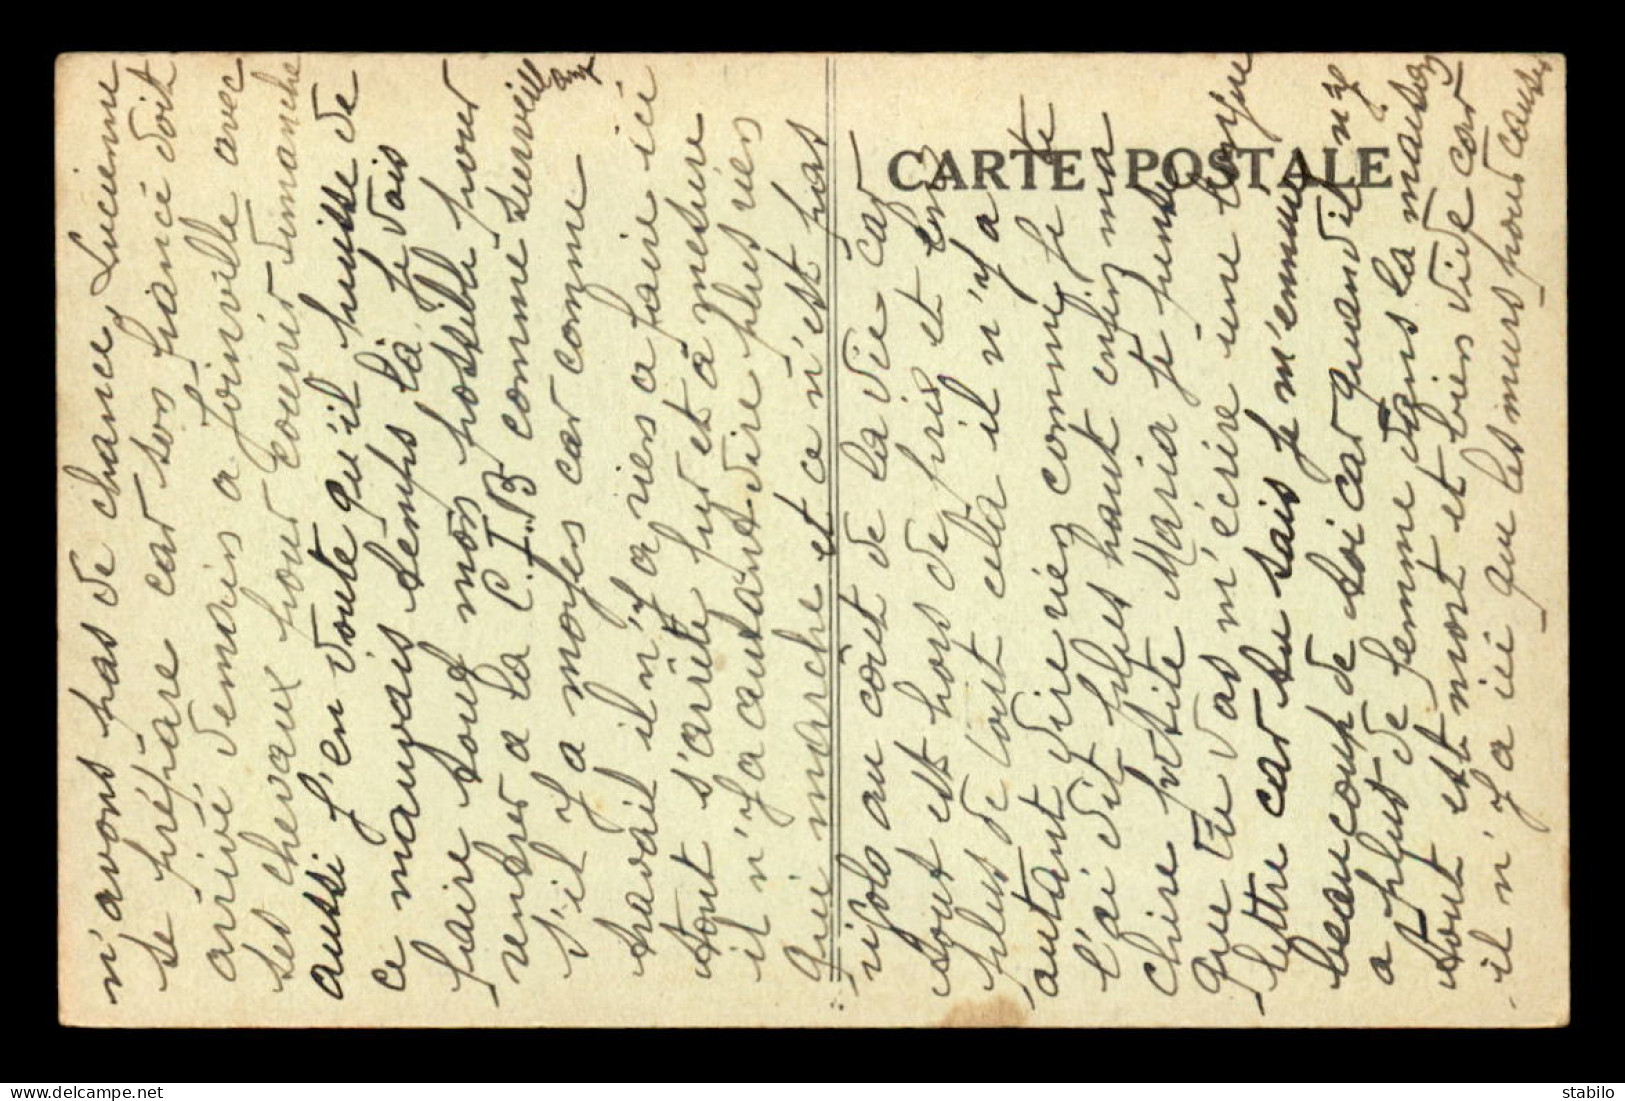 n'avons pas de chance, Lucienne
se prépare car son fiancé doit
arrivé demain a Joinville avec
ses chevaux pour courir dimanche
aussi j'en doute qu'il puisse de
ce mauvais temps là. Je vais
faire tout mon possible pour
rentrer a la C.I.B comme surveille
s'il y a moyes car comme
travail il n'y a rien a faire ici
tout s'arrête fur et à mesure
il n'y a autant dire plus rien
qui marche et ce n'est pas
rigolo au coût de la vie car
tout est hors de prix et en
plus de tout cela il n'y a
autant dire rien comme je te
l'ai dit plus haut enfin ma
chère petite Maria je pense
que tu vas m'écrire une longue
lettre car tu sais je m'ennuie
beaucoup de toi car quand il n'y
a plus de femme dans la maison
tout est mort et bien vide car
il n'y a ici que les murs pour causer
CARTE POSTALE
stabilo